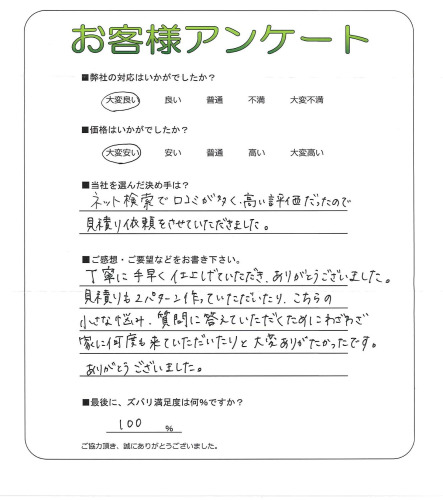 お客様アンケート
■弊社の対応はいかがでしたか？
大変良い 良い 普通 不満 大変不満
■価格はいかがでしたか？
大変安い 安い 普通 高い 大変高い
■当社を選んだ決め手は？
ネット検索で口コミが多く、高い評価だったので
見積り依頼をさせていただきました。
■ご感想・ご要望などをお書き下さい。
丁寧に手早く仕上げていただき、ありがとうございました。
見積りも2パターン作っていただいたり、こちらの
小さな悩み、質問に答えていただくためにわざわざ
家に何度も来ていただいたりと大変ありがたかったです。
ありがとうございました。
■最後に、ズバリ満足度は何%ですか？
100 %
ご協力頂き、誠にありがとうございました。